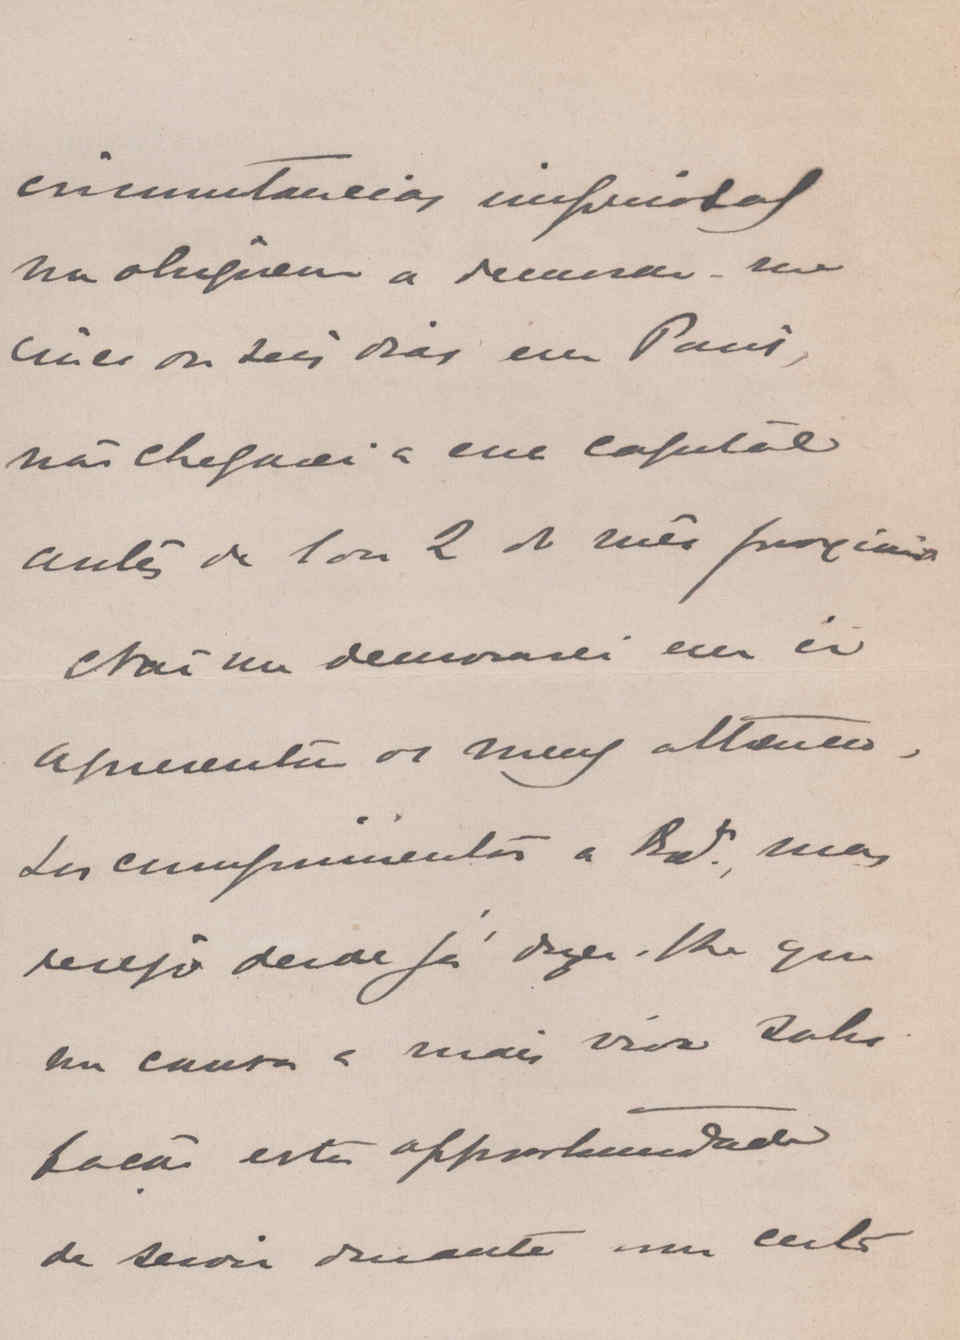 circumstancias imperiosas
me obriguem a demorar-me
cinco ou seis dias em Paris,
não chegarei a essa capital
antes de 1 ou 2 do mês proximo
Não me demorarei em ir
apresentar os meus attencio-
sos cumprimentos a , mas
desejo desde já dizer-lhe que
me causa a mais viva satis-
fação esta opportunidade
de servir durante um certo